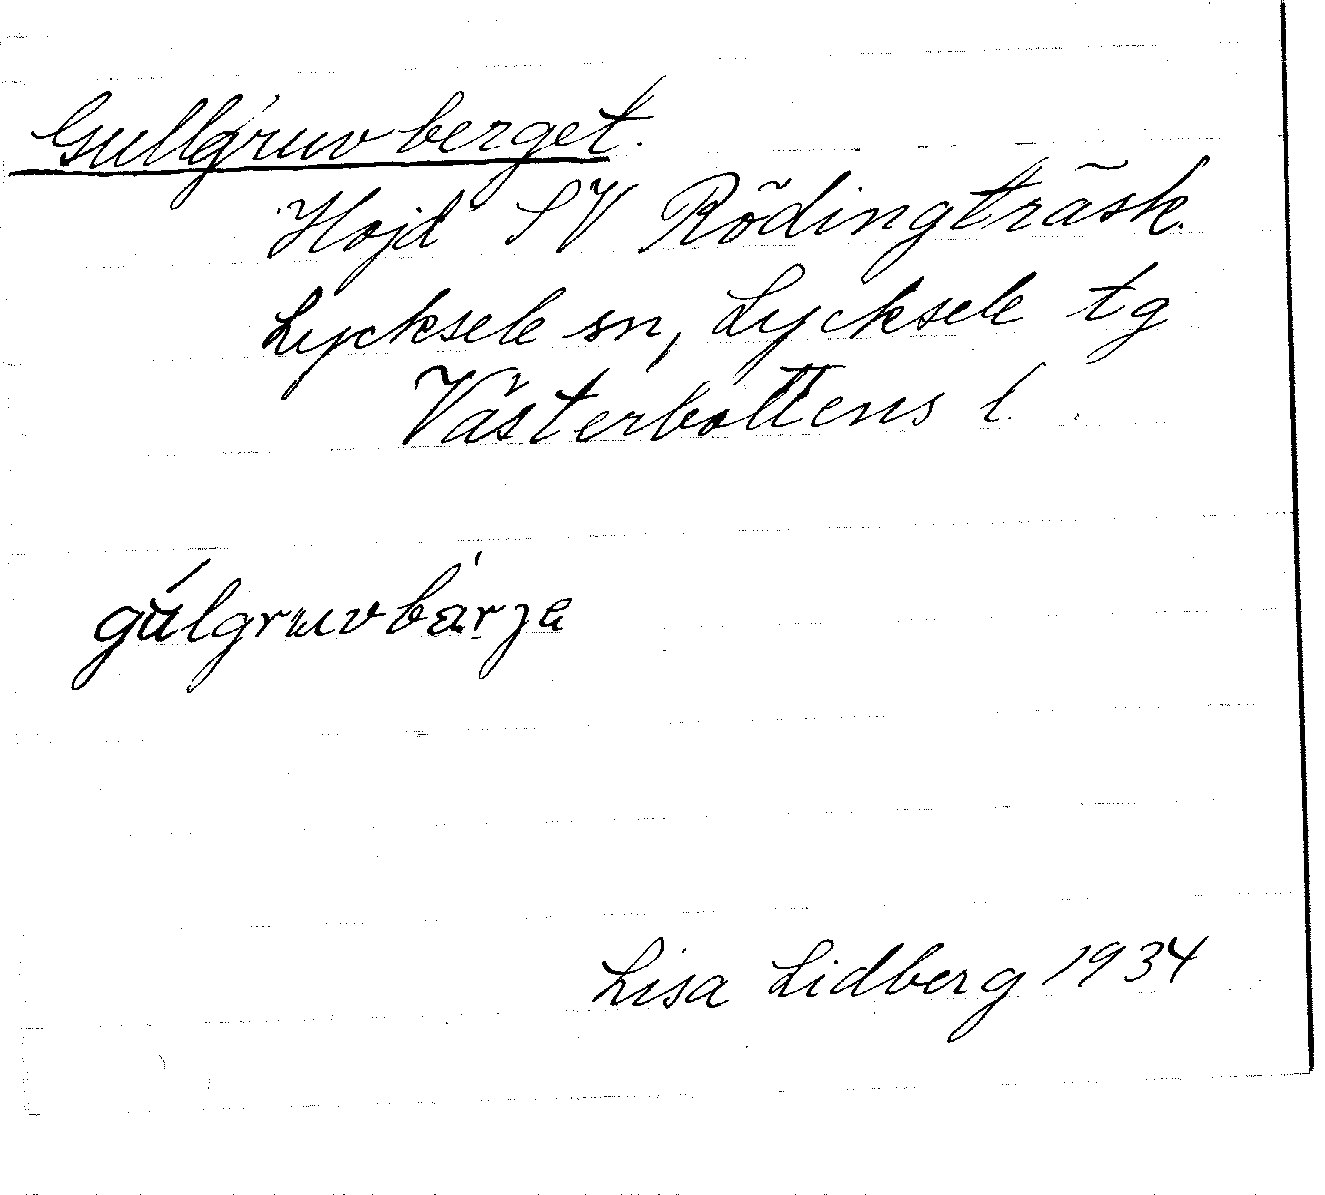 Gullgruvberget.
Höjd SV Rödingträsk.
Lycksele sn, Lycksele tg
Västerbottens l
gúlgruvbärja
Lisa Lidberg 1934